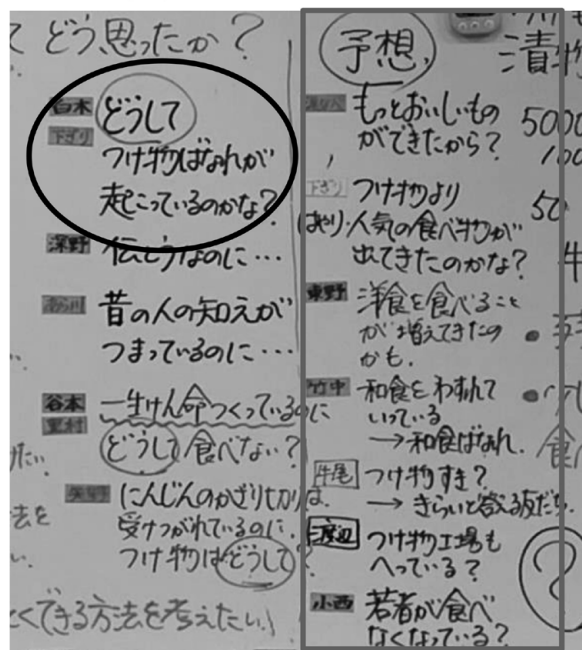 どう思ったか？
白木
下ぎり
どうして
つけ物ばなれが
起こっているのかな？
深野
伝とうなのに…
昔の人の知えが
つまっているのに…
谷本
里村
一生けん命つくっているのに
どうして食べない？
矢野
にんじんのかざり切りは
受けつがれているのに
つけ物はどうして？
くできる方法を考えたい
予想
もっとおいしいもの
ができたから？
下ぎり
つけ物より
人気の食べ物が
出てきたのかな？
東野
洋食を食べること
が増えてきたの
かも．
竹中
和食をわすれて
いっている
→和食ばなれ．
牛尾
つけ物すき？
→きらいと答える友だち．
渡辺
つけ物工場も
へっている？
小西
若者が食べ
なくなっている？
漬物
5000
100
50
？